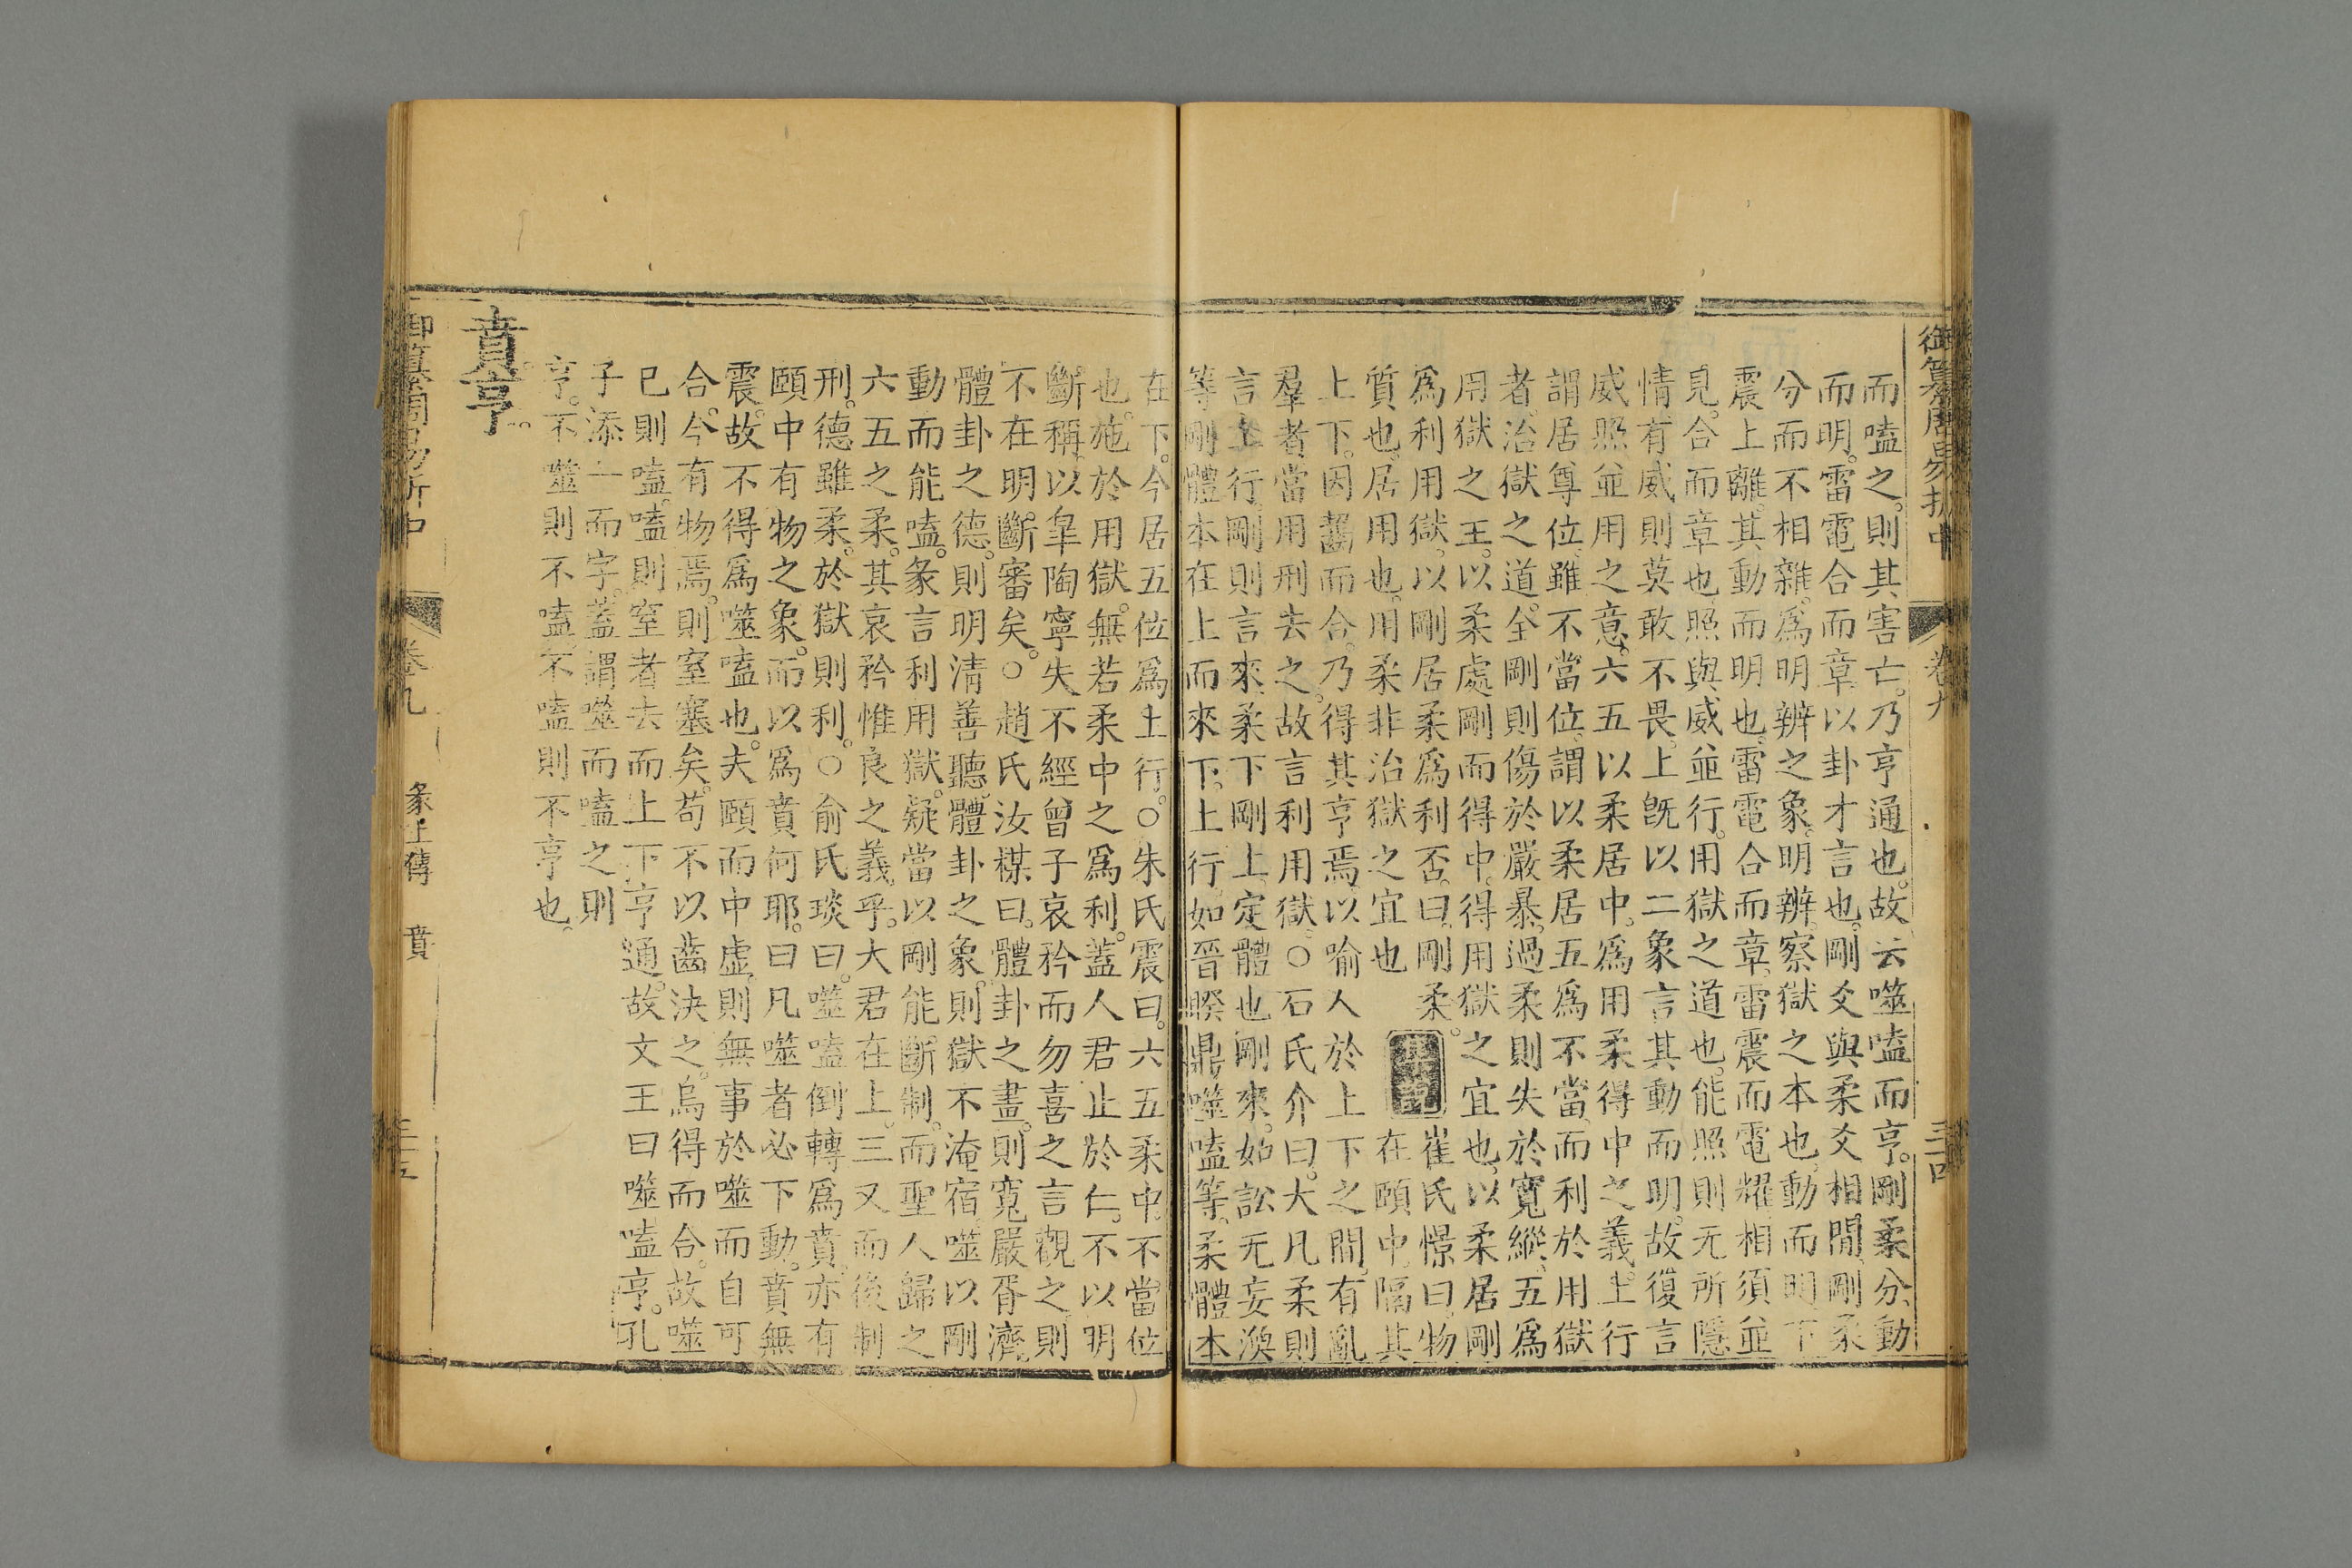 御纂周易折中 卷九 三十四
而嗑之。則其害亡。乃亨通也。故云噬嗑而亨。剛柔分。動
而明。雷電合而章。以卦才言也。剛爻與柔爻相間。剛柔
分而不相雜。爲明辨之象。明辨。察獄之本也。動而明。下
震上離。其動而明也。雷電合而章。雷震而電耀。相須並
見。合而章也。照與威並行。用獄之道也。能照則无所隱
情。有威則莫敢不畏。上旣以二象言其動而明。故復言
威照並用之意。六五以柔居中。爲用柔得中之義。上行
謂居尊位。雖不當位。謂以柔居五爲不當。而利於用獄
者。治獄之道。全剛則傷於嚴暴。過柔則失於寬縱。五爲
用獄之主。以柔處剛而得中。得用獄之宜也。以柔居剛
爲利用獄。以剛居柔爲利否。曰。剛柔。
質也。居。用也。用柔非治獄之宜也
崔氏憬曰。物
在頤中。隔其
上下。因齧而合。乃得其亨焉。以喻人於上下之間。有亂
羣者。當用刑去之。故言利用獄。○石氏介曰。大凡柔則
言上行。剛則言來。柔下剛上。定體也。剛來。如訟无妄渙
等。剛體本在上而來下。上行。如晉睽鼎噬嗑等。柔體本
在下。今居五位爲上行。○朱氏震曰。六五柔中。不當位
也。施於用獄。無若柔中之爲利。蓋人君止於仁。不以明
斷稱。以皐陶寧失不經曾子哀矜而勿喜之言觀之。則
不在明斷審矣。○趙氏汝楳曰。體卦之畫。則寬嚴胥濟。
體卦之德。則明清善聽。體卦之象。則獄不淹宿。噬以剛
動而能嗑。彖言利用獄。疑當以剛能斷制。而聖人歸之
六五之柔。其哀矜惟良之義乎。大君在上。三又而後制
刑。德雖柔。於獄則利。○俞氏琰曰。噬嗑倒轉爲賁。亦有
頤中有物之象。而以爲賁何耶。曰凡噬者必下動。賁無
震。故不得爲噬嗑也。夫頤而中虛。則無事於噬而自可
合。今有物焉。則窒塞矣。苟不以齒決之。烏得而合。故噬
已則嗑。嗑則窒者去而上下亨通。故文王曰噬嗑亨。孔
子添一而字。蓋謂噬而嗑之則
亨。不噬則不嗑。不嗑則不亨也。
賁。亨。
御纂周易折中 卷九 彖上傳 賁 三十五